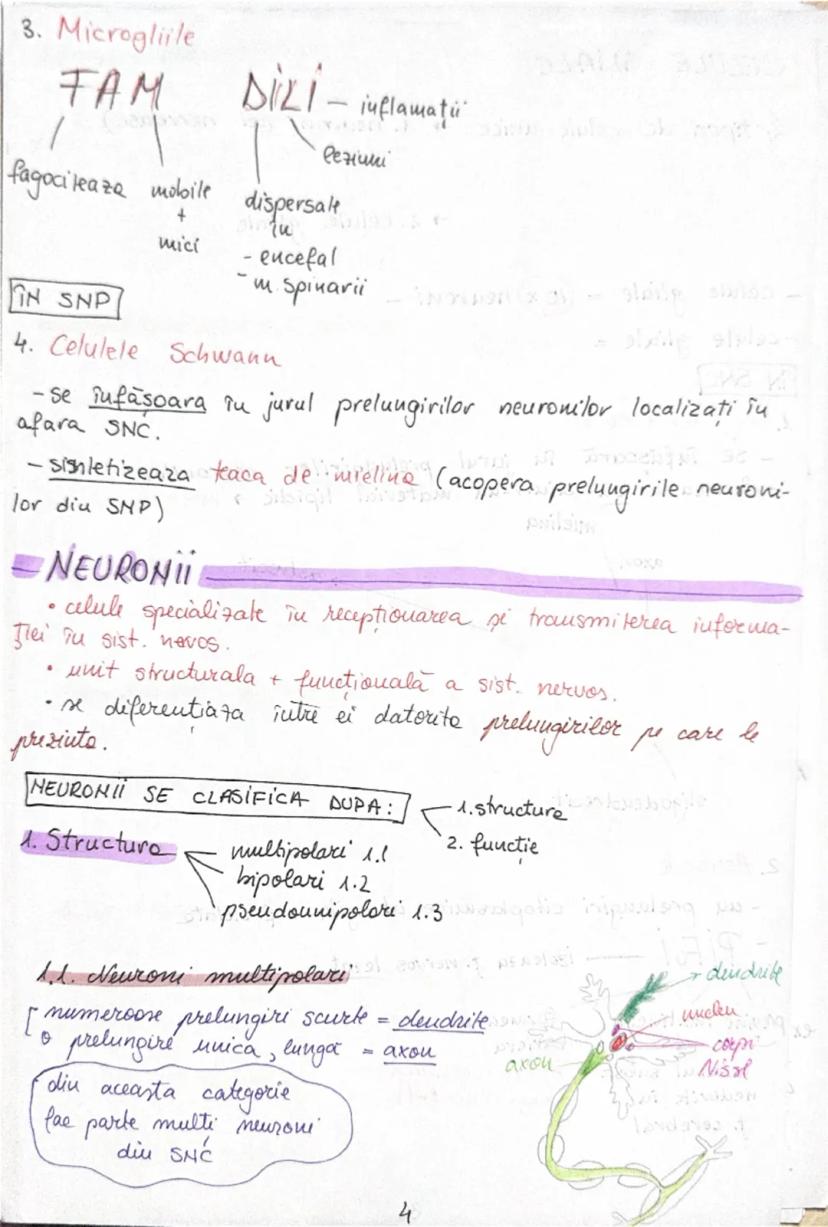 3. Microgliile
FAM DILI – inflamații
leziuni
fagociteaza mobile
+
mici
dispersate
în
- encefal
- m. spinarii
ÎN SNP
4. Celulele Schwann
- se înfășoara în jurul prelungirilor neuronilor localizați în
afara SNC.
- sintetizeaza teaca de mielina (acopera prelungirile neuroni-
lor din SNP)
- NEURONII
• celule specializate în recepționarea și transmiterea informa-
ției în sist. nervos.
• unit structurala + funcțională a sist. nervos.
• se diferențiaza între ei datorita prelungirilor pe care le
prezinta.
NEURONII SE CLASIFICA DUPA: 1. structura
2. funcție
1. Structura
multipolari 1.1
bipolari 1.2
pseudounipolari 1.3
1.1. Neuroni multipolari
numeroase prelungiri scurte = dendrite
o prelungire unica, lungă = axon
din aceasta categorie
fac parte multi neuroni
din SNC
dendrite
nucleu
corpi
Nissl
axon
4